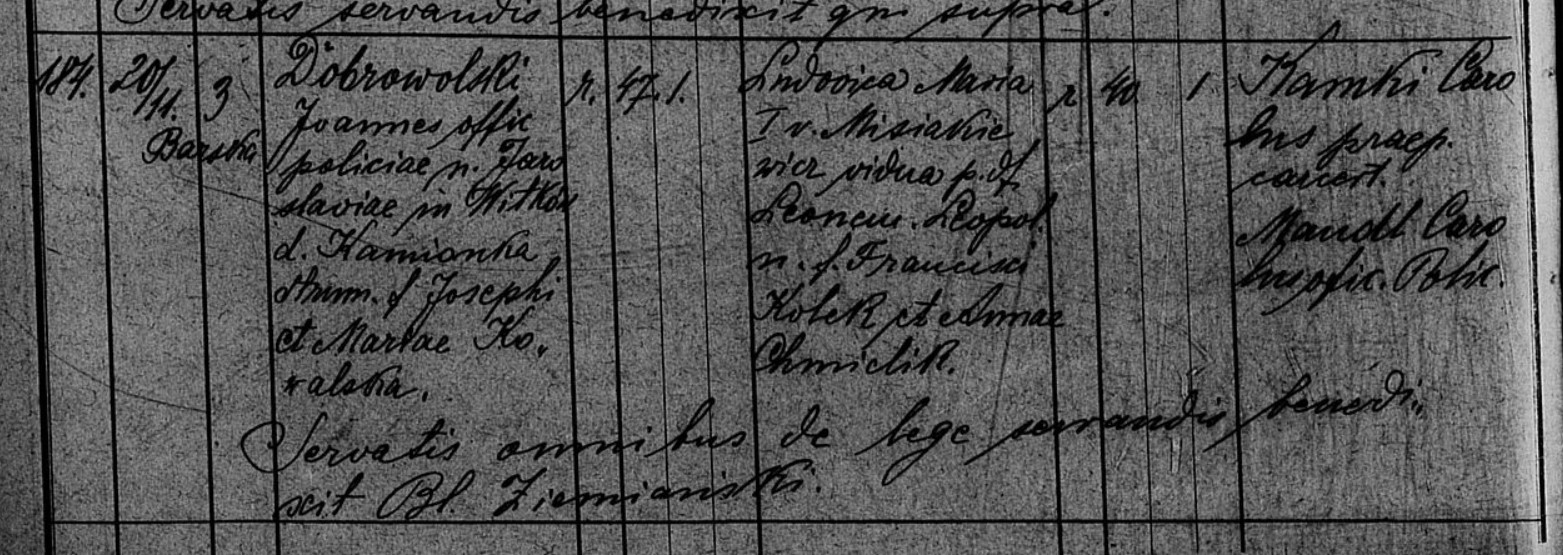 Servatis servandis benedixit qui supra.
184. 20/11. 3 Barska
Dobrowolski
Joannes offic
policiae n. Jaro
slaviae in Witków
d. Kamionka
strum. f Josephi
et Mariae Ko„
walska.
r. 47. 1.
Ludovica Maria
I v. Misiakie
wicz vidua p. df.
Leopol.
n. f. Francisci
Kolek et Annae
Chmielik.
r 40 1
Caro
lus praep.
carcert.
Mandl Caro
lus ofic. Polic.
Servatis omnibus de lege servandis benedi„
xit Bl. Ziemiański.